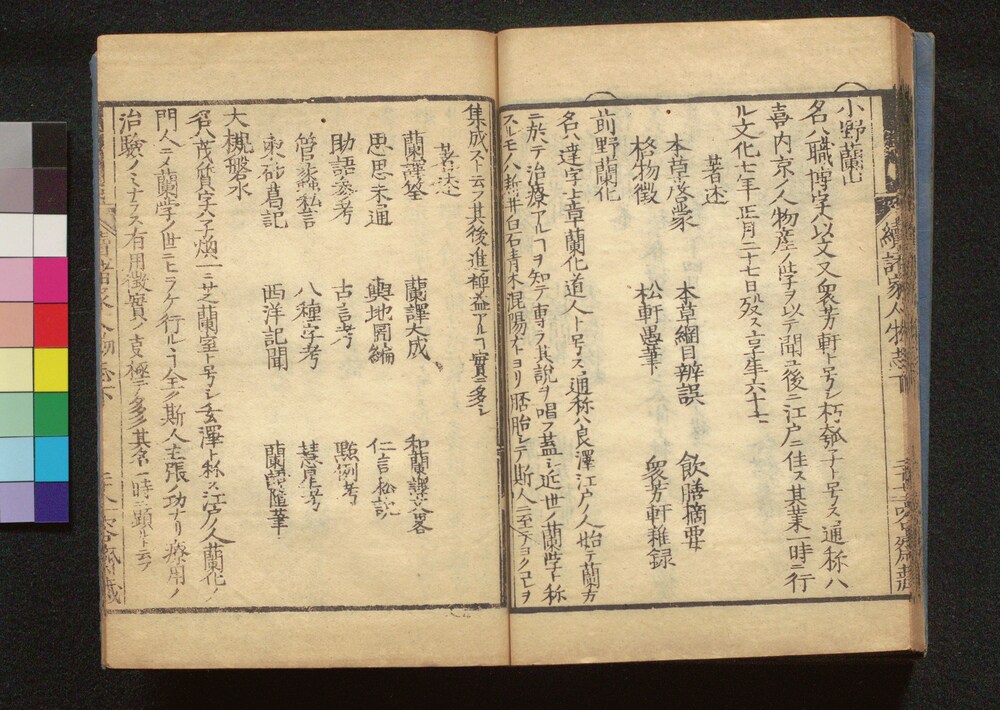 續諸家人物志下
青雲堂藏
小野蘭山
名ハ職博字ハ以文又衆芳軒ト号シ朽匏子ト号ス通称ハ
喜内京ノ人物産ノ学ヲ以テ聞ユ後ニ江戸ニ住ス其業一時ニ行
ル文化七年正月二十七日歿ス享年六十二
著述
本草啓蒙 本草綱目辨誤 飲膳摘要
格物徴 松軒愚筆 衆芳軒雜録
前野蘭化
名ハ達字ハ子章蘭化道人ト号ス通称ハ良澤江戸ノ人始テ蘭方
ニ於テ治療アルヿヲ知テ専ラ其説ヲ唱フ蓋シ近世ノ蘭学ト称
スルモノハ新井白石青木混陽ナトヨリ胚胎シテ斯人ニ至テヨクコレヲ
集成スト云フ其後進裨益アルヿ實ニ多シ
著述
蘭譯筌 蘭譯大成 和蘭譯文畧
思思未通 輿地圖編 仁言私説
助語参考 古言考 點例考
管蠡私言 八種字考 彗星考
東砂葛記 西洋記聞 蘭語隨筆
大槻磐水
名ハ茂質字ハ子煥一ニ芝蘭室ト号シ玄澤ト称ス江戸ノ人蘭化ノ
門人ニメ蘭学ノ世ニヒラケ行ルヽヿ全ク斯人主張ノ功ナリ療用ノ
治驗ノミナラス有用徴實ノ支極テ多ク其名一時ニ顕ルト云フ